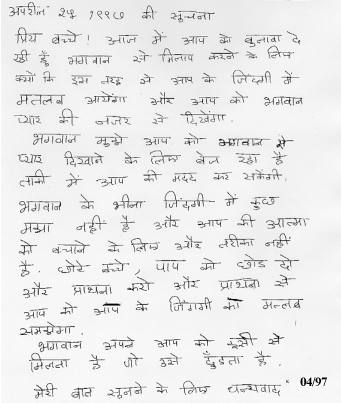 अपरील २५ १९९७ की सूचना
प्रिय बच्चे! आज में आप का बुलावा दे
रही हूँ भगवान से मिलाप करने के लिए
क्यों कि इस तरह से आप के जिंदगी में
मतलब आयेगा और आप को भगवान
प्यार की नजर से दिखेगा.
भगवान मुझे आप को भगवान से
प्यार दिखाने के लिए बेज रहा है
ताकी में आप की मदद कर सकेगी.
भगवान के बीना जिंदगी में कुछ
मझा नहीं है और आप की आत्मा
को बचाने के लिए और तरीका नहीं
है. छोटे बच्चे, पाप को छोड दो
और प्राथना करो और प्राथना से
आप को आप के जिंगगी का मतलब
समझेगा.
भगवान अपने आप को उसी से
मिलता है जो उसे ढूँढता है.
मेरी बात सुनने के लिए धन्यवाद" 04/97